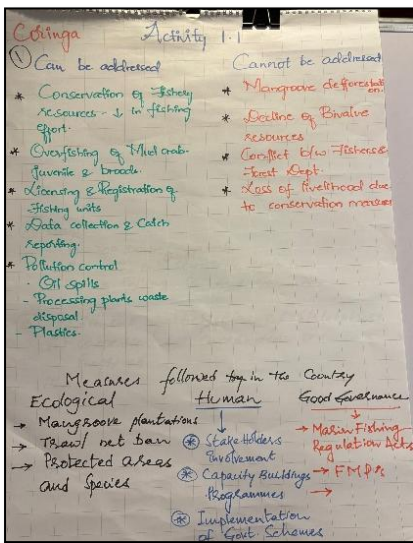 Coringa
Activity 1.1
① Can be addressed
* Conservation of Fishery
resources - ↓ in fishing
effort.
* Overfishing of Mud crab.
Juvenile & broods.
* Licensing & Registration of
Fishing units
* Data collection & Catch
reporting.
* Pollution control
- Oil spills
- Processing plants waste
disposal
- Plastics.
Cannot be addressed
* Mangroove defforestation.
* Decline of Bivalve
resources
* Conflict b/w Fishers &
Forest Dept.
* Loss of livelihood due
to conservation measures
Measures followed in the Country
Ecological
→ Mangroove plantations
→ Trawl net ban
→ Protected areas
and Species
Human
* Stake Holders
Involvement
* Capacity Buildings
Programmes
* Implementation
of Govt. Schemes
Good Governance
→ Marin Fishing
Regulation Acts
→ FMPs
→